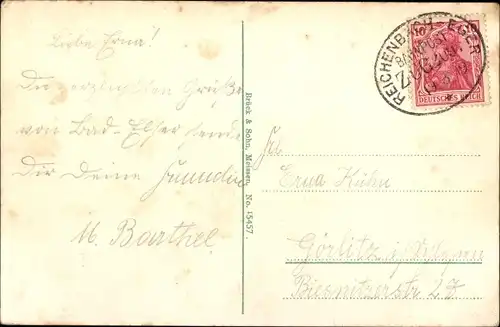 Liebe Erna!
Die herzlichsten Grüße
von Bad-Elster sendet
Dir Deine Freundin
M. Barthel
Brück & Sohn, Meissen. No. 15457.
REICHENBACH - EGER
BAHNPOST
ZUG
10
DEUTSCHES REICH
Erna Kühn
Görlitz i/
Biesnitzerstr